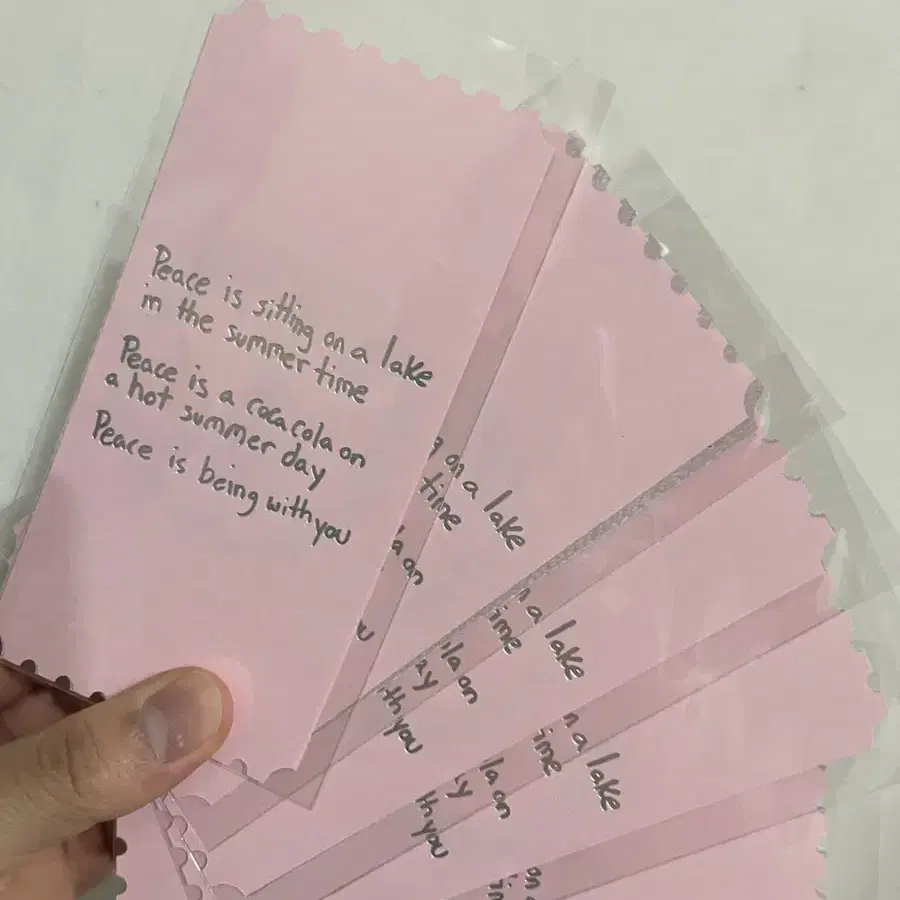 Peace is sitting on a lake
in the summer time
Peace is a coca cola on
a hot summer day
Peace is being with you
on a lake
time
la on
u
n a lake
ime
la on
ay
th you
n a lake
ime
la on
y
th you
on
in